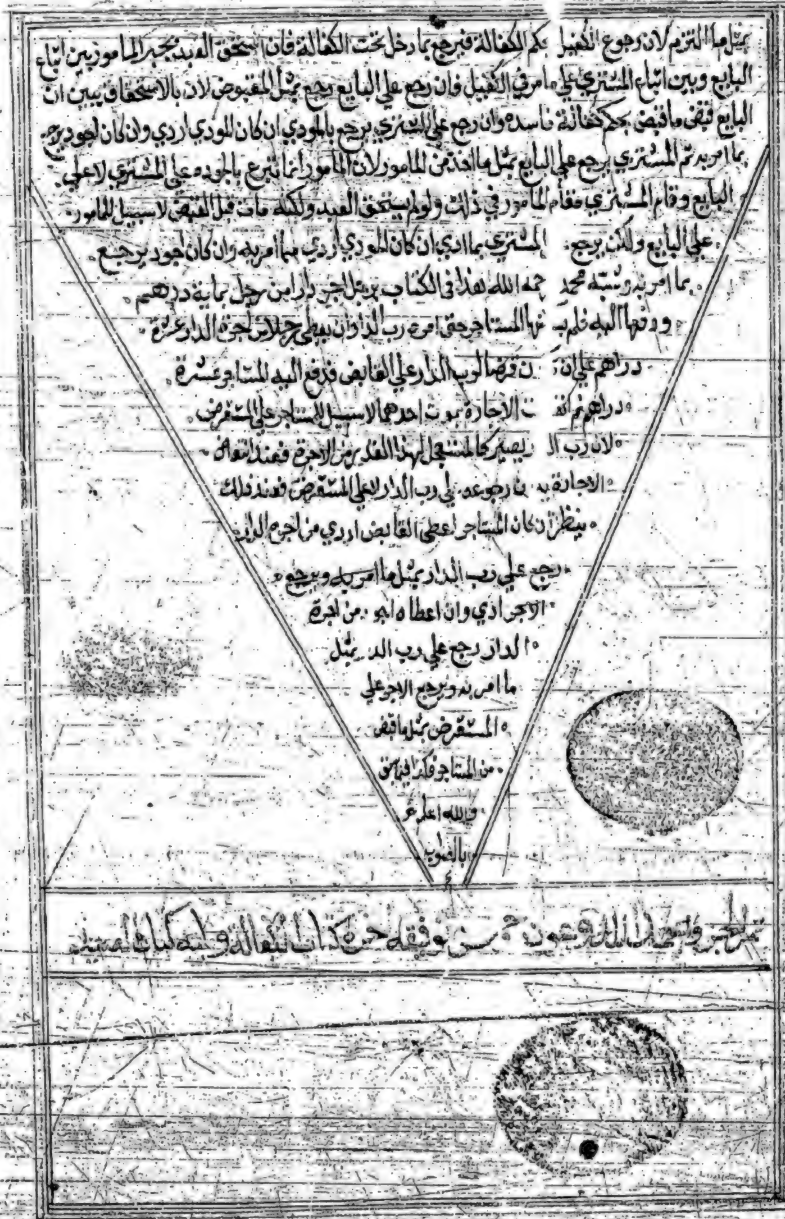 بمثل ما التزم لان رجوع الكفيل بحكم الكفالة فيرجع بما دخل تحت الكفالة فان استحق العبد تخير المامور بين اتباع
البايع وبين اتباع المشتري علي ما مر في الكفيل وان رجع علي البايع رجع بمثل المقبوض لان بالاستحقاق يتبين ان
البايع قبض ما قبض بحكم كفالة فاسدة وان رجع علي المشتري يرجع بالمودي ان كان المودي اردي وان كان اجود يرجع
بما امر به ثم المشتري يرجع علي البايع بمثل ما اخذ من المامور لان المامور انما تبرع بالجودة علي المشتري لا علي
البايع وقام المشتري مقام المامور في ذلك ولو لم يستحق العبد ولكنه مات قبل القبض لا سبيل للمامور
علي البايع ولكن يرجع المشتري بما ادي ان كان المودي اردي مما امر به وان كان اجود يرجع
بما امر به وشبه محمد رحمه الله هذا في الكتاب برجل اجر دارا من رجل بماية درهم
ودفعها اليه فلم المستاجر حتي امره رب الدار ان يعطي رجلا من اجرة الدار عشرة
دراهم علي ان قرضا لرب الدار علي القابض فدفع اليه المستاجر عشرة
دراهم ثم الاجارة بموت احدهما لا سبيل للمستاجر علي المستقرض
لان رب الدار يصير كالمستعجل لهذا القدر من الاجرة فعند انتقاض
الاجارة رجوعه علي رب الدار لا علي المستقرض فعند ذلك
ينظر ان كان المستاجر اعطي القابض اردي من اجرة الدار
رجع علي رب الدار بمثل ما امر به ويرجع
الاجر ادي وان اعطاه اجود من اجرة
الدار رجع علي رب الدار بمثل
ما امر به ويرجع الاجر علي
المستقرض بمثل ما قبض
من المستاجر فكذا فيما سبق
والله اعلم
بالصواب
تمام الجزو الله وعون حسن توفيقه اخره كتاب الكفالة وابتدا كتاب